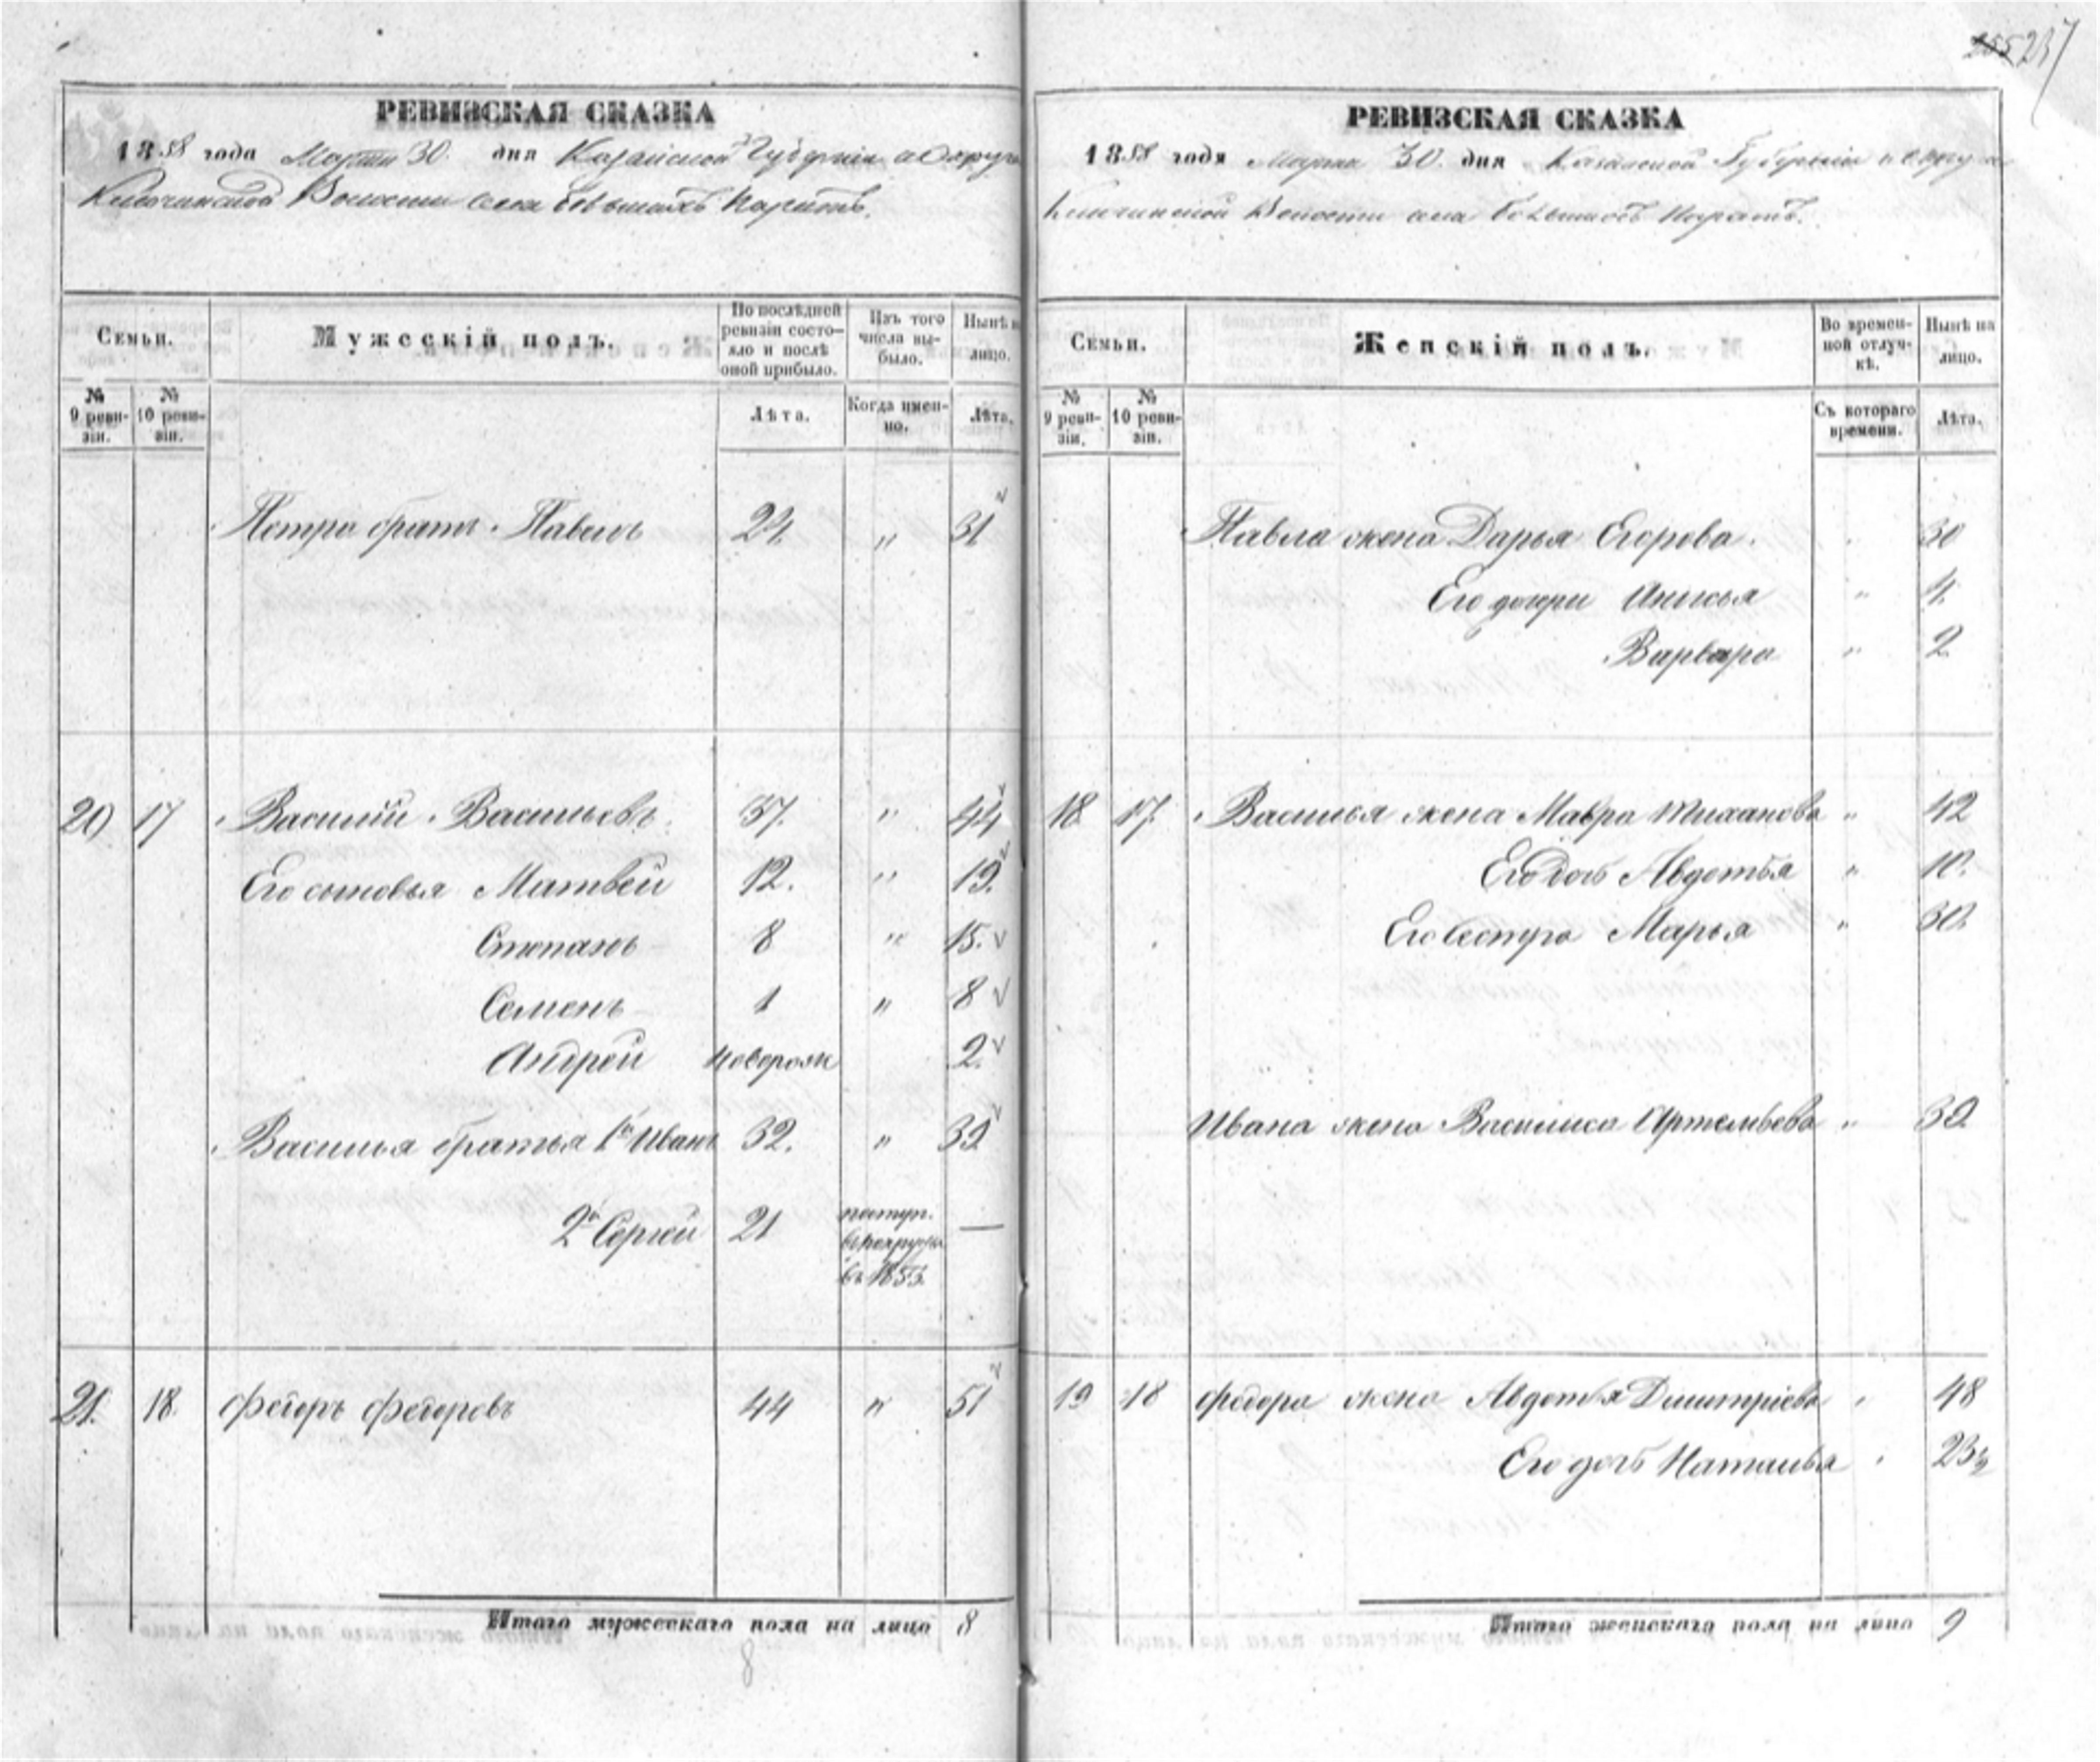 255 237
РЕВИЗСКАЯ СКАЗКА
1858 года Марта 30. дня Казанской Губерніи и Округа
Ключинской Волости села Большихъ Каратъ.
Семьи.
Мужескій полъ.
По послѣдней ревизіи состояло и послѣ оной прибыло.
Изъ того числа выбыло.
Нынѣ на лицо.
№ 9 ревизіи.
№ 10 ревизіи.
Лѣта.
Когда именно.
Лѣта.
Петра братъ Павелъ 24 " 31
20 17 Василій Васильевъ 37. " 44
Его сыновья Матвей 12. " 19.
Степанъ 8 " 15.
Семенъ 1 " 8
Андрей новорож 2.
Василья братья 1й Иванъ 32. " 39
2й Сергей 21 поступ. в рекруты въ 1855 —
21. 18. Федоръ Федоровъ 44 " 51
Итого мужескаго пола на лицо 8
8
РЕВИЗСКАЯ СКАЗКА
1858 года Марта 30. дня Казанской Губерніи и Округа
Ключинской Волости села Большихъ Каратъ.
Семьи.
Женскій полъ.
Во временной отлучкѣ.
Нынѣ на лицо.
№ 9 ревизіи.
№ 10 ревизіи.
Съ котораго времени.
Лѣта.
Павла жена Дарья Егорова. 30
Его дочери Анисья " 4.
Варвара " 2
18 17. Василья жена Мавра " 42
Его дочь Авдотья " 10.
Его сестра Марья " 30.
Ивана жена Василиса Артемьева " 39
19 18 Федора жена Авдотья Дмитріева " 48
Его дочь Наталья " 23½
Итого женскаго пола на лицо 9